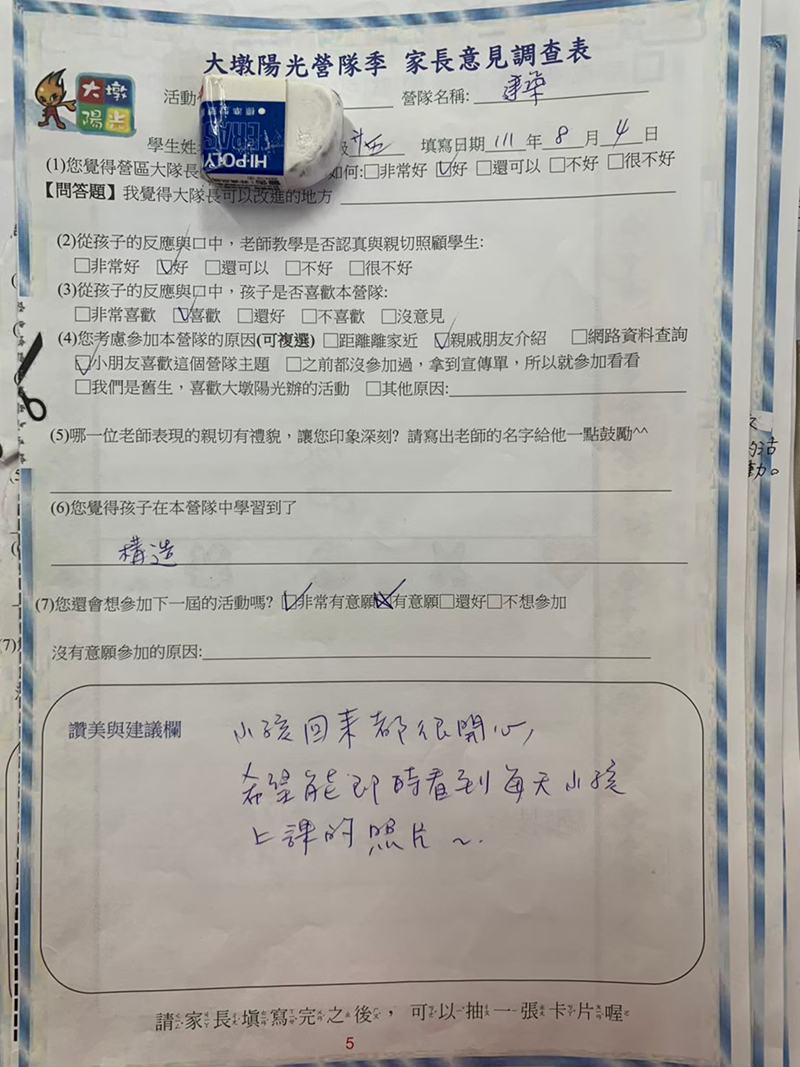 大墩陽光營隊季 家長意見調查表
大墩
陽光
活動
營隊名稱: 建築
HI-POLY
ERAS
學生姓
填寫日期 111 年 8 月 4 日
(1)您覺得營區大隊長 如何:□非常好 ☑好 □還可以 □不好 □很不好
【問答題】我覺得大隊長可以改進的地方
(2)從孩子的反應與口中，老師教學是否認真與親切照顧學生:
□非常好 ☑好 □還可以 □不好 □很不好
(3)從孩子的反應與口中，孩子是否喜歡本營隊:
□非常喜歡 ☑喜歡 □還好 □不喜歡 □沒意見
(4)您考慮參加本營隊的原因(可複選) □距離離家近 ☑親戚朋友介紹 □網路資料查詢
☑小朋友喜歡這個營隊主題 □之前都沒參加過，拿到宣傳單，所以就參加看看
□我們是舊生，喜歡大墩陽光辦的活動 □其他原因:
(5)哪一位老師表現的親切有禮貌，讓您印象深刻? 請寫出老師的名字給他一點鼓勵^^
(6)您覺得孩子在本營隊中學習到了
構造
(7)您還會想參加下一屆的活動嗎? ☑非常有意願☒有意願□還好□不想參加
沒有意願參加的原因:
讚美與建議欄
小孩回來都很開心,
希望能即時看到每天小孩
上課的照片~.
請家長填寫完之後，可以抽一張卡片喔
5